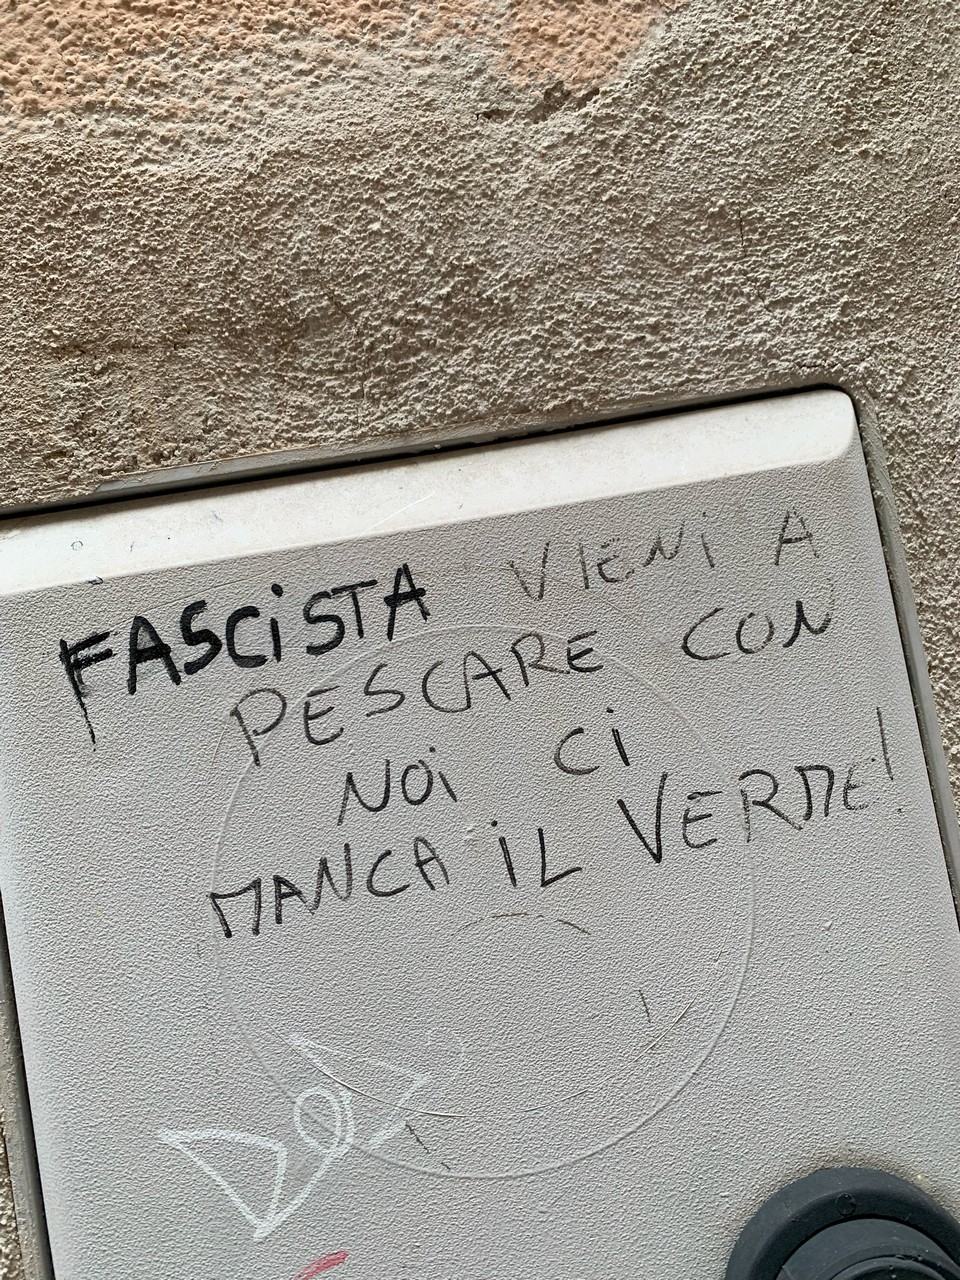 FASCiSTA VIENi A
PESCARE CON
NOi Ci
MANCA iL VERME!